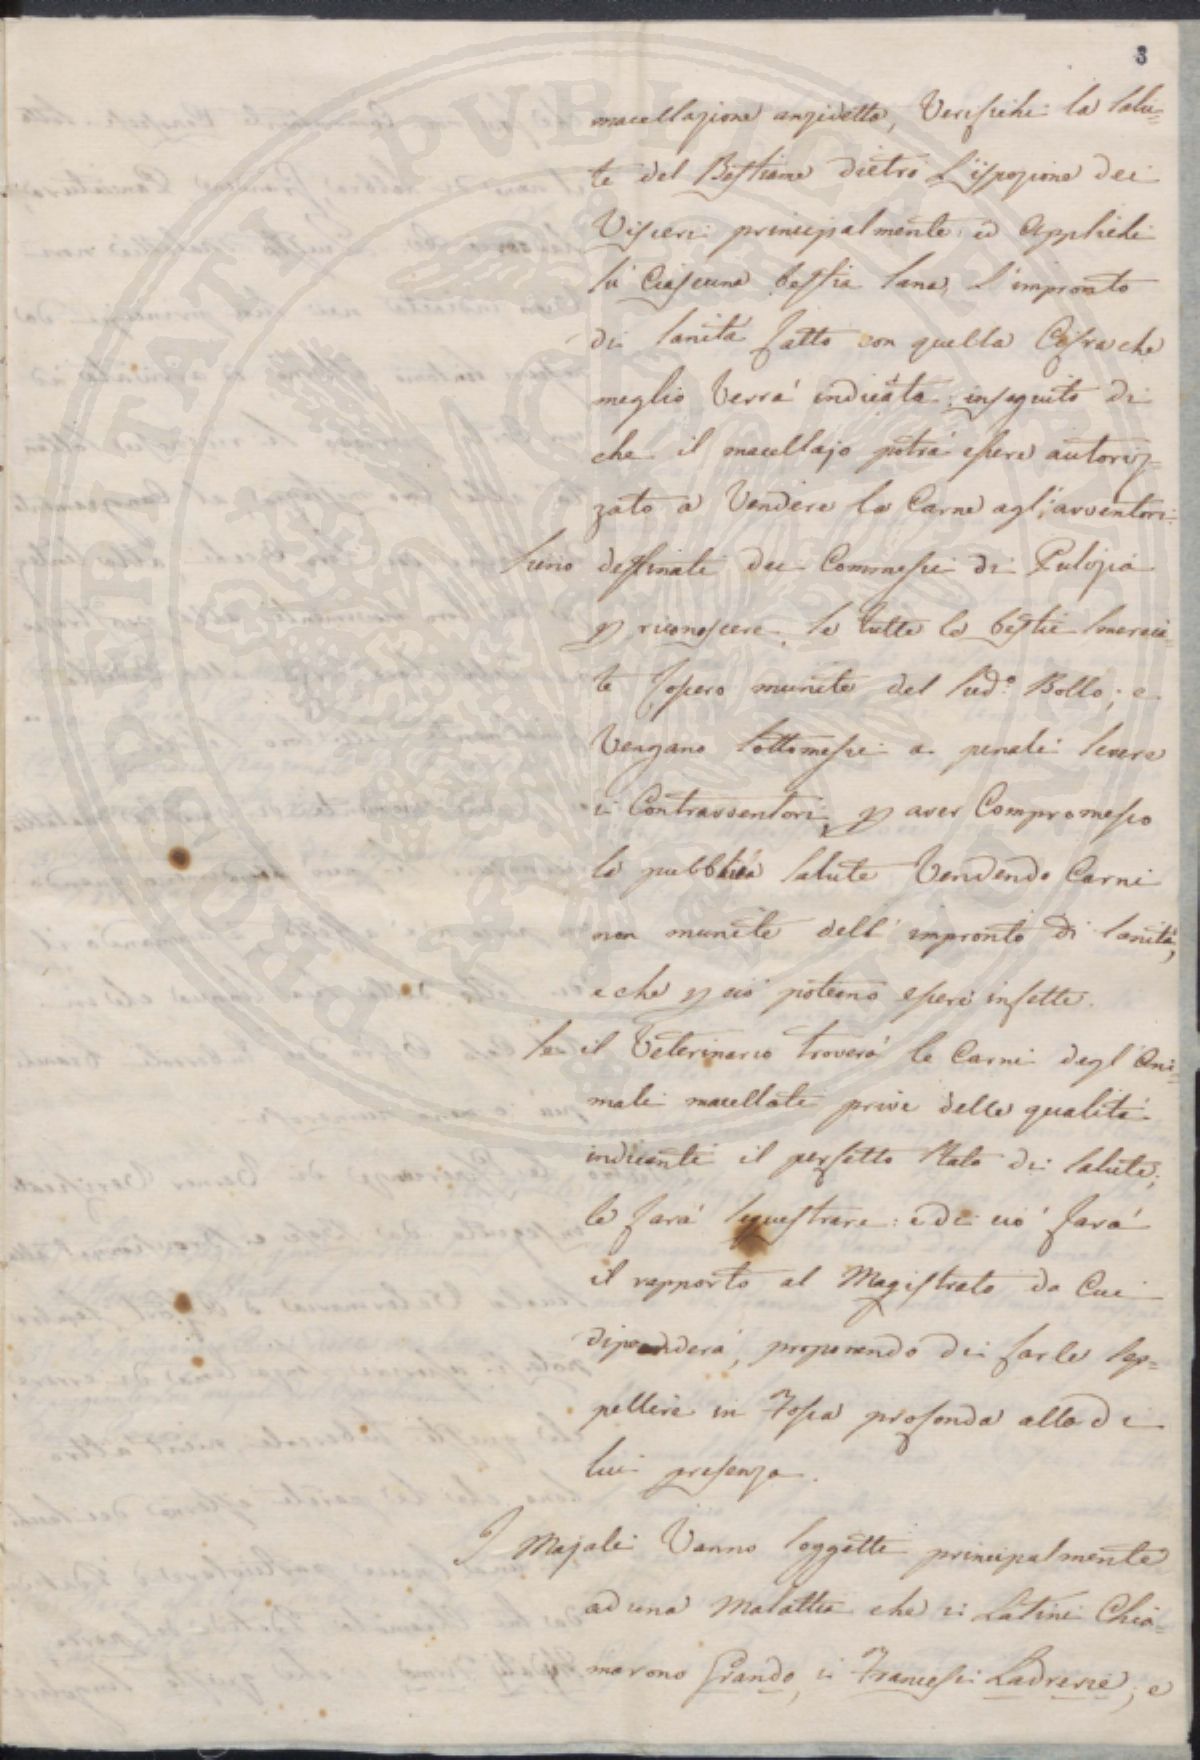 3
macellazione anzidetta, Verifichi la Salu=
te del Bestiame dietro L'ispezione dei
Visceri principalmente ed Applichi
su Ciascuna bestia sana, l'impronto
di sanità fatto con quella Cifra che
meglio Verrà indicata; inseguito di
che il macellajo potrà essere autoriz=
zato a Vendere la Carne agl'avventori.
Sieno destinati dei Commessi di Pulizia
p riconoscere se tutte le bestie smercia=
te fossero munite del Sud.º Bollo; e
Vengano Sottomessi a penali severe
i Contravventori, p aver Compromesso
la pubblica Salute Vendendo Carni
non munite dell'impronto di Sanità,
e che p ciò poteano essere infette.
Se il Veterinario troverà le Carni degl'Ani=
mali macellate prive delle qualità
indicanti il perfetto Stato di Salute;
le farà sequestrare: e di ciò farà
il rapporto al Magistrato da Cui
dipenderà, proponendo di farle sep=
pellire in Fossa profonda alla di
lui presenza.
I Majali Vanno soggetti principalmente
ad una Malattia che i Latini Chia=
marono Grando, i Francesi Ladrerie; e
PROSPERITATI PVBLICAE